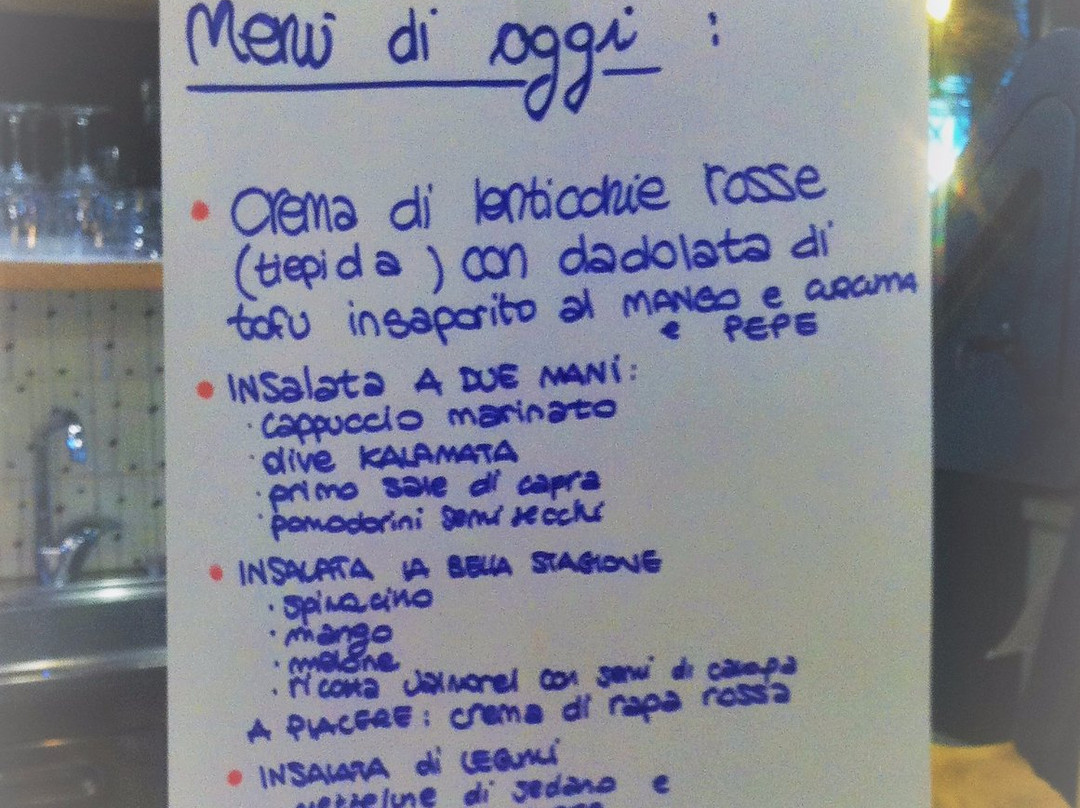 Menù di oggi :
• Crema di lenticchie rosse
(tiepida) con dadolata di
tofu insaporito al MANGO e CURCUMA
e PEPE
• INSalata A DUE MANI:
· cappuccio marinato
· olive KALAMATA
· primo sale di capra
· pomodorini semi secchi
• INSALATA LA BELLA STAGIONE
· spinacino
· mango
· melone
· ricotta con semi di canapa
A PIACERE: crema di rapa rossa
• INSALATA di LEGUMI
di sedano e